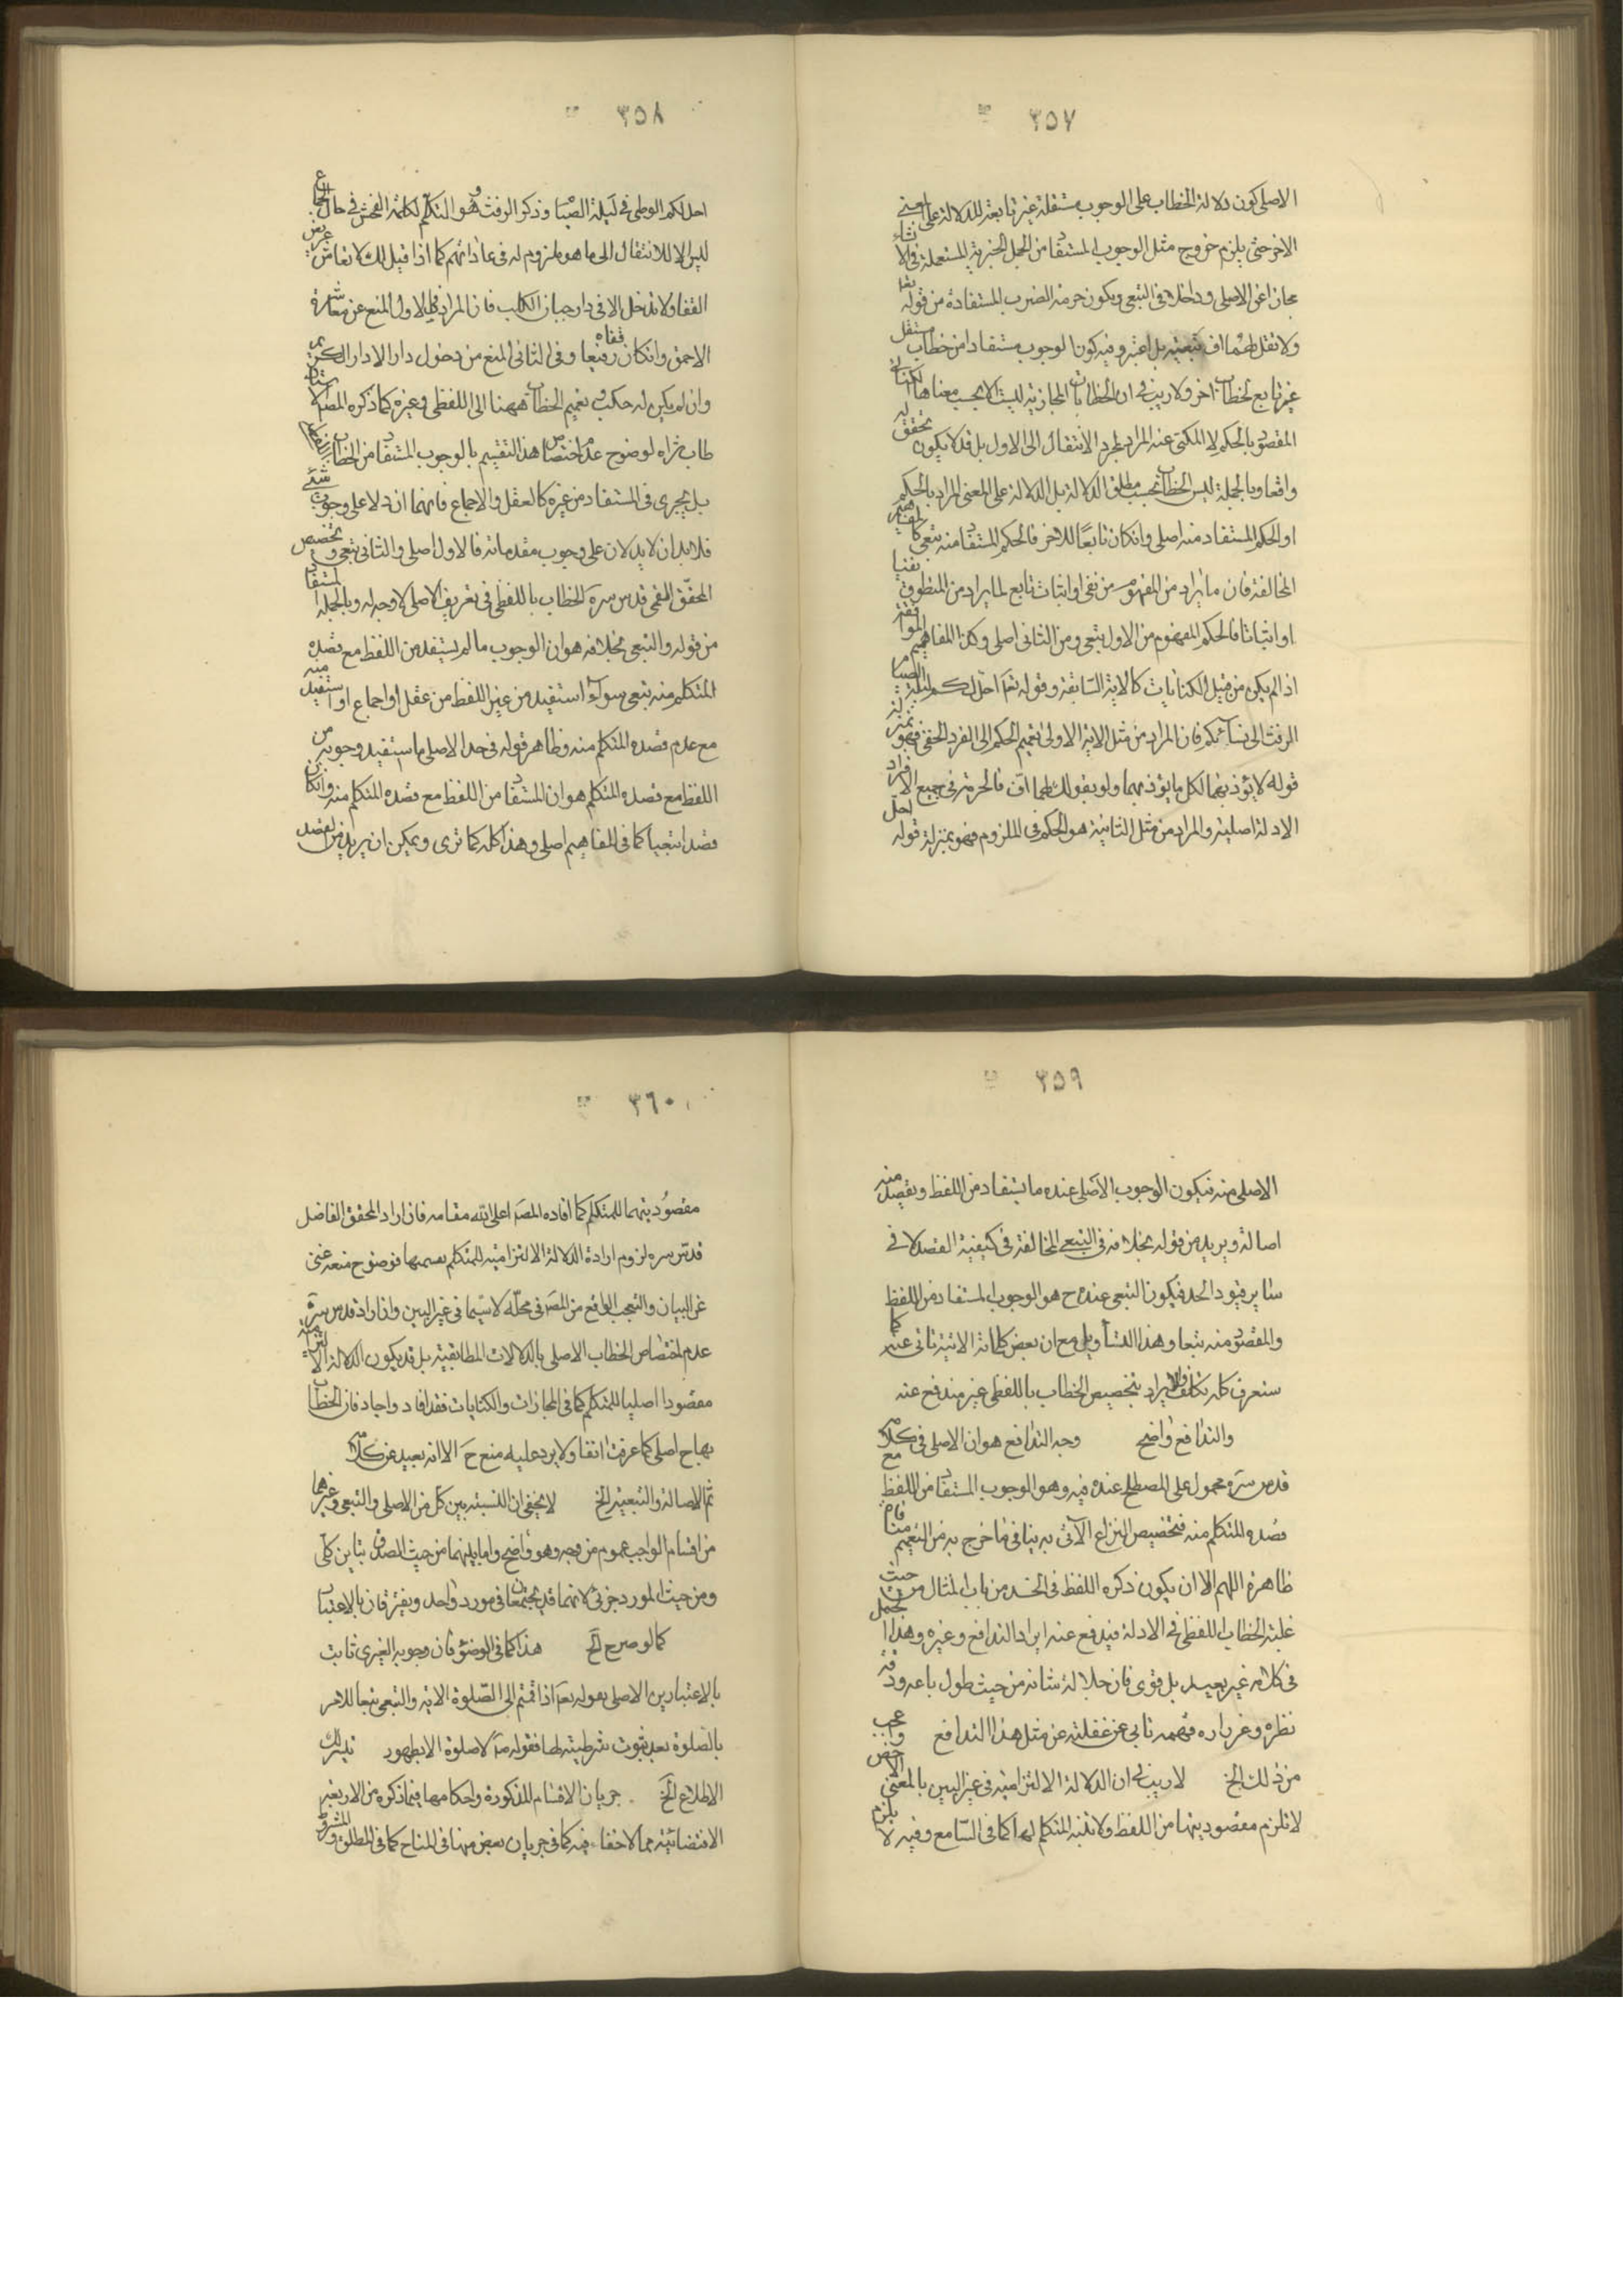 ٣٥٧
الاصلي كون دلالة الخطاب على الوجوب مستقلة غير تابعة للدلالة على معنى
الاخر حتى يلزم خروج مثل الوجوب المستفاد من الجمل الخبرية المستعملة في الانشاء
مجازا عن الاصلي و داخلا في التبعي ويكون حرمة الضرب المستفادة من قوله تعا
ولا تقل لهما اف تبعية بل اعتبر وفيه كون الوجوب مستفادا من خطاب مستقل
غير تابع لخطاب اخر ولا ريب في ان الخطابات المجازية ليست الا بحسب معناها الكنائي
المقصود بالحكم لا المكنى عنه المراد لمجرد الانتقال الى الاول بل قد لا يكون له تحقق
واقعا وبالجملة ليس الخطاب بحسب مطلق الدلالة بل الدلالة على المعنى المراد بالحكم
او الحكم المستفاد منه اصلي وان كان تابعا للاخر فالحكم المستفاد منه تبعي كالمفاهيم
المخالفة فان ما يراد من المفهوم من نفي او اثبات تابع لما يراد من المنطوق نفيا
او اثباتا فالحكم المفهوم من الاول تبعي ومن الثاني اصلي وكذا المفاهيم الموافقة
اذا لم يكن من قبيل الكنايات كالاية السابقة وقوله تعا احل لكم ليلة الصيام
الرفث الى نسائكم فان المراد من مثل الاية الاولى تعميم الحكم الى الفرد الخفي فهو بمنزلة
قوله لا يؤذيهما لكل ما يؤذيهما ولو بقولك لهما اف فالحرمة في جميع الافراد
الادلة اصلية والمراد من مثل الثانية هو الحكم في الملزوم فهو بمنزلة قوله لعل
٣٥٨
احل لكم الوطي في ليلة الصيام وذكر الرفث وهو التكلم لكلمة الفحش في حال الجماع
ليس الا للانتقال الى ما هو ملزوم له في عاداتهم كما اذا قيل لك لا تعاشر عريض
القفا ولا تدخل الا في دار جبان الكلب فان المراد في الاول المنع عن معاشرة
الاحمق وان كان قفاه رفيعا وفي الثاني المنع من دخول دار الا دار الكريم
وان لم يكن له كلب و تعميم الخطاب ههنا الى اللفظي وغيره كما ذكره المص الاستاد
طاب ثراه لوضوح عدم اختصاص هذا التقسيم بالوجوب المستفاد من الخطاب
بل يجري في المستفاد من غيره كالعقل والاجماع فانهما ان دلا على وجوب شئ
فلابد ان لا يدلان على وجوب مقدماته فالاول اصلي والثاني تبعي و تخصيص
المحقق القمي قدس سره الخطاب باللفظي في تعريف الاصلي لا وجه له وبالجملة المستفاد
من قوله والتبعي بخلافه هو ان الوجوب ما لم يستفد من اللفظ مع قصده
المتكلم منه تبعي سواء استفيد من غير اللفظ من عقل او اجماع او استفيد منه
مع عدم قصده المتكلم منه وظاهر قوله في حد الاصلي ما استفيد وجوبه من
اللفظ مع قصده المتكلم هو ان المستفاد من اللفظ مع قصده المتكلم منه وان كان
قصدا تبعيا كما في المفاهيم اصلي وهذا كله كما ترى ويمكن ان يريد من القصد
٣٥٩
الاصلي منه فيكون الوجوب الاصلي عنده ما يستفاد من اللفظ ويقصد منه
اصالة ويريد من قوله بخلافه في التبعي المخالفة في كيفية القصد لا في
سائر قيود الحد فيكون التبعي عنده ح هو الوجوب المستفاد من اللفظ
والمقصود منه تبعا وهذا التأويل مع ان بعض كلماته الاتية تابى عنه كما
ستعرف كله تكلف والايراد بتخصيص الخطاب باللفظي غير مندفع عنه
والتدافع واضح وجه التدافع هو ان الاصلي في كلامه
قدس سره محمول على المصطلح عنده فيه وهو الوجوب المستفاد من اللفظ مع
قصده المتكلم منه فتخصيص النزاع الآتي به ينافي ما خرج به من التعميم
ظاهره اللهم الا ان يكون ذكره اللفظ في الحد من باب المثال من حيث
غلبة الخطاب اللفظي في الادلة فيدفع عنه ايراد التدافع وغيره وهذا
في كلامه غير بعيد بل قوي فان جلالة شانه من حيث طول باعه ودقة
نظره وغزارة فهمه تابى عن غفلته عن مثل هذا التدافع واعجب
من ذلك الخ لا ريب في ان الدلالة الالتزامية في غير البين بالمعنى الاخص
لا تلزم مقصوديتها من اللفظ ولا تنبه المتكلم لها كما في السامع وفيه لا يلزم
٣٦٠
مقصوديتهما للمتكلم كما افاده المص اعلى الله مقامه فان اراد المحقق الفاضل
قدس سره لزوم ارادة الدلالة الالتزامية للمتكلم بقسميها فوضوح منعه غني
عن البيان والتعجب الواقع من المص في محله لا سيما في غير البين وان اراد قدس سره
عدم اختصاص الخطاب الاصلي بالدلالات المطابقية بل قد يكون الدلالة الالتزامية
مقصودا اصليا للمتكلم كما في المجازات والكنايات فقد افاد واجاد فان الخطاب
بها ح اصلي كما عرفت انفا ولا يرد عليه منع ح الا انه بعيد عن كلامه
ثم الاصالة والتبعية الخ لا يخفى ان النسبة بين كل من الاصلي والتبعي وغيرهما
من اقسام الواجب عموم من وجه وهو واضح واما بينهما من حيث المصداق تباين كلي
ومن حيث المورد جزئي لانهما قد يجتمعان في مورد واحد ويفترقان بالاعتبار
كما لو صرح الخ هذا كما في الوضوء فان وجوبه الغيري ثابت
بالاعتبارين الاصلي بقوله تعا اذا قمتم الى الصلوة الاية والتبعي تبعا للامر
بالصلوة بعد ثبوت شرطيته لها فقوله لا صلوة الا بطهور
الاطلاع الخ جريان الاقسام المذكورة واحكامها فيما ذكره من الاربعة
الاقتضائية مما لا خفاء فيه كما في جريان بعض منها في المباح كما في المطلق والمشروط